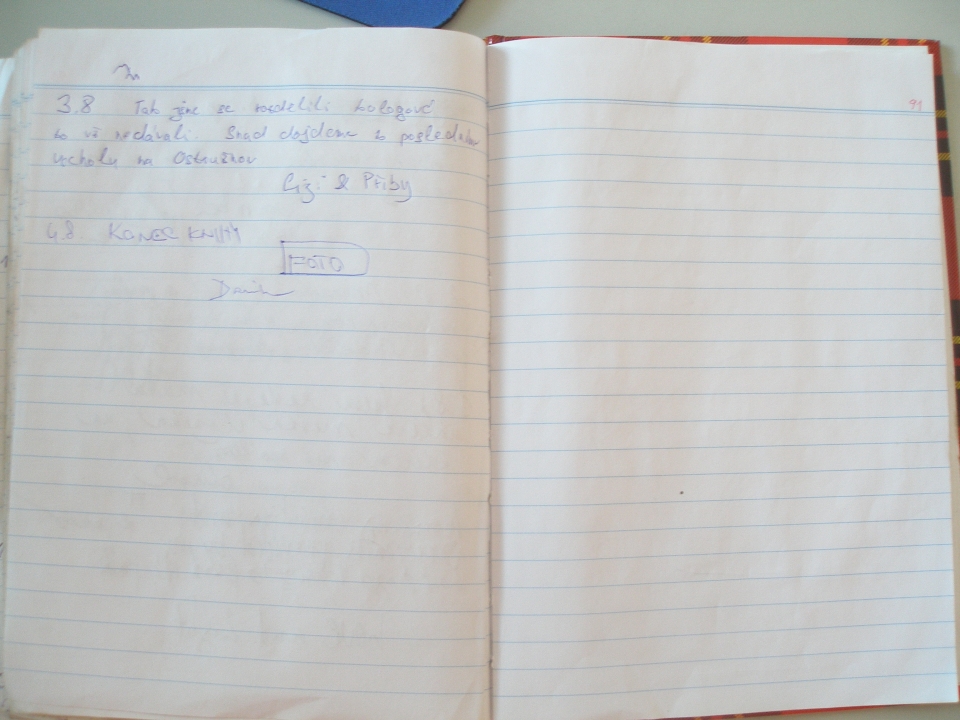 3.8 Tak jsme se rozdělili kologové
to už nedávali. Snad dojdeme k poslednímu
vrcholu na Ostružnou
Cizi & Přiby
4.8. KONEC KNIHY
FOTO
91